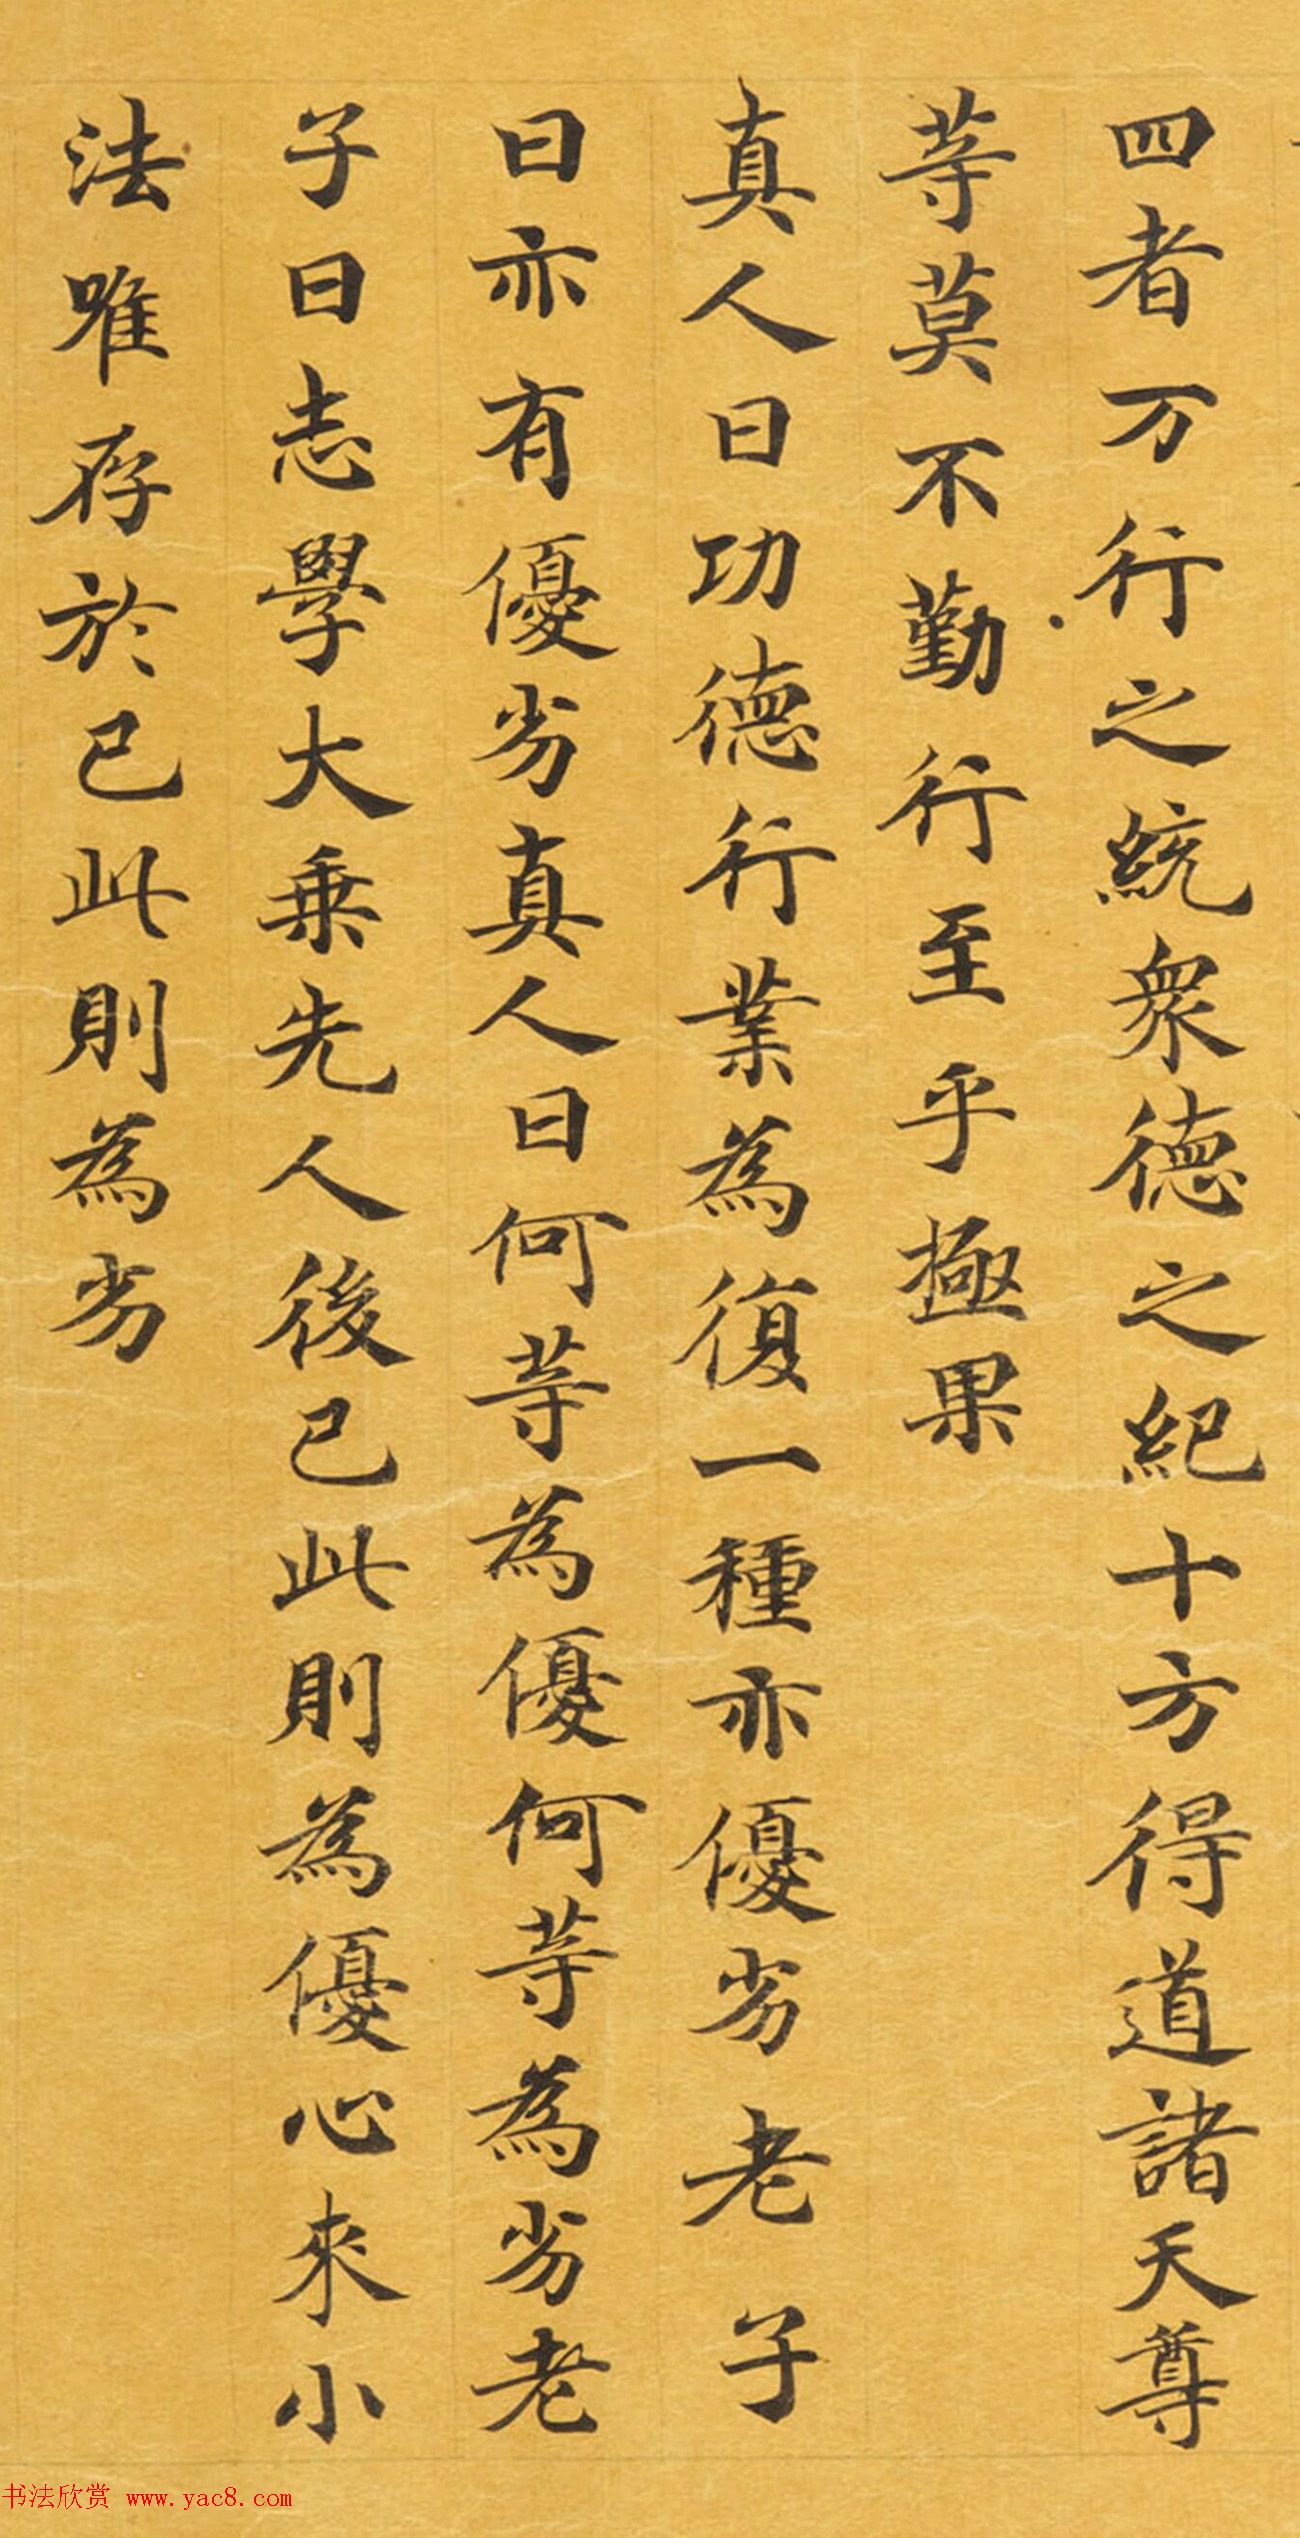 四者万行之統衆德之紀十方得道諸天尊
等莫不勤行至乎極果
真人曰功德行業為復一種亦優劣老子
曰亦有優劣真人曰何等為優何等為劣老
子曰志學大乗先人後己此則為優心來小
法唯存於己此則為劣
书法欣赏 www.yac8.com